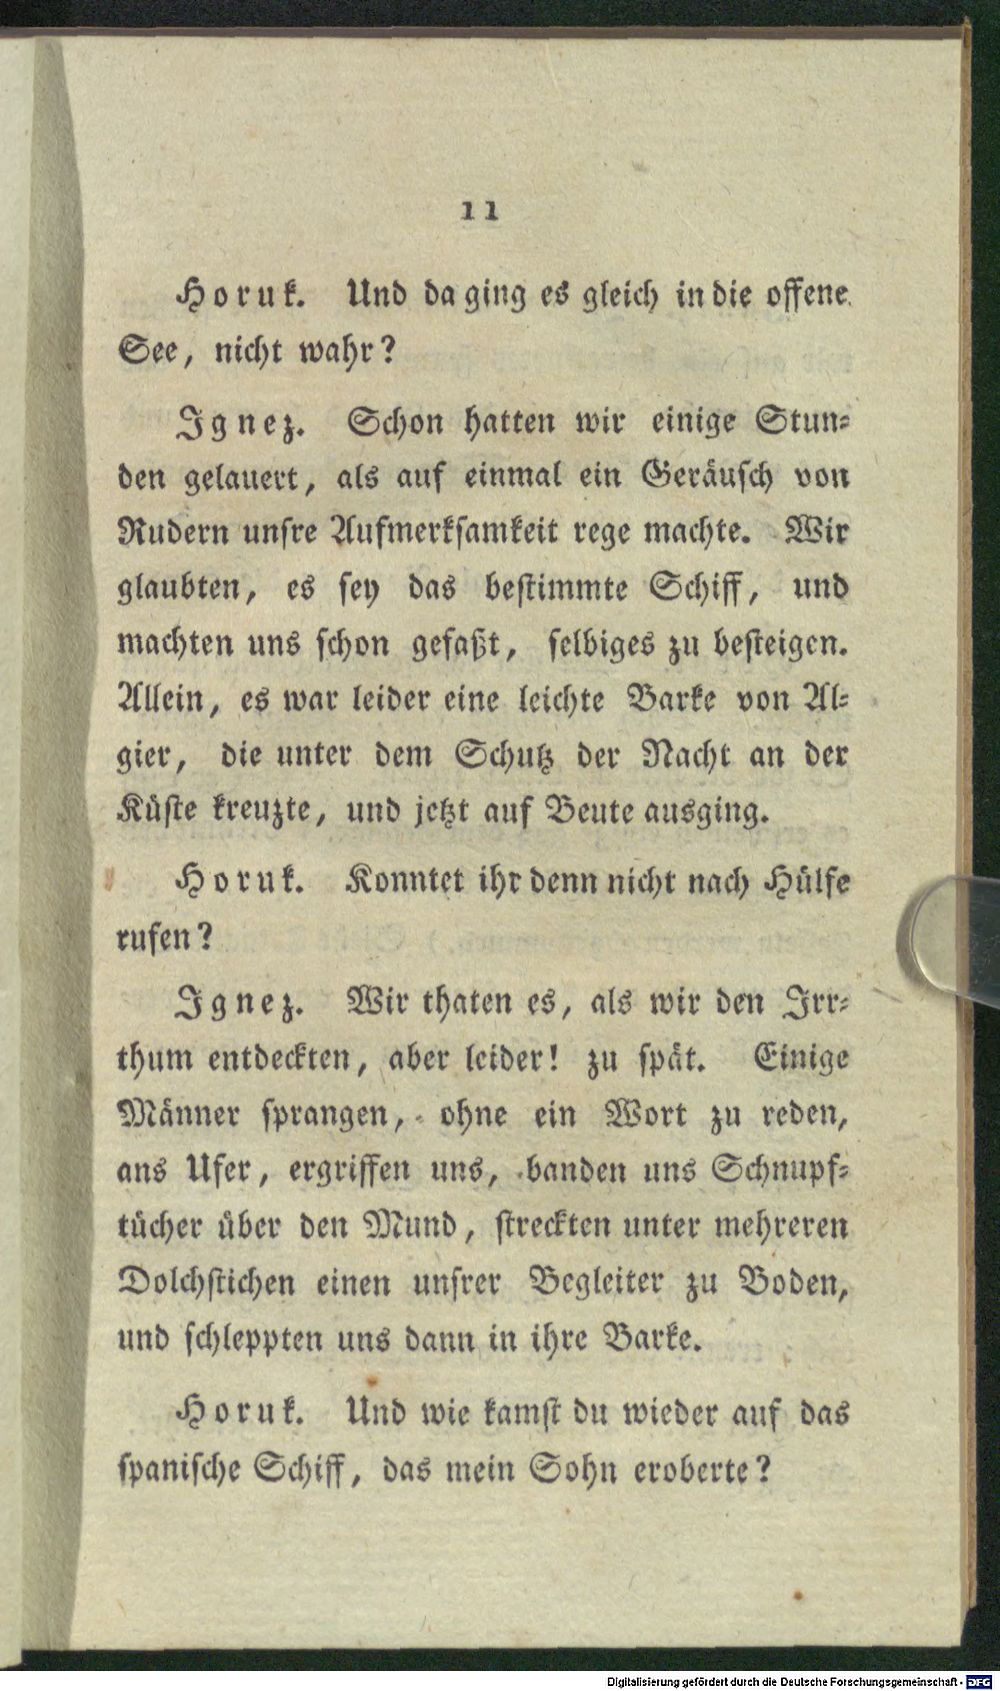 11
Horuk. Und da ging es gleich in die offene
See, nicht wahr?
Ignez. Schon hatten wir einige Stun-
den gelauert, als auf einmal ein Geräusch von
Rudern unsre Aufmerksamkeit rege machte. Wir
glaubten, es sey das bestimmte Schiff, und
machten uns schon gefaßt, selbiges zu besteigen.
Allein, es war leider eine leichte Barke von Al-
gier, die unter dem Schutz der Nacht an der
Küste kreuzte, und jetzt auf Beute ausging.
Horuk. Konntet ihr denn nicht nach Hülfe
rufen?
Ignez. Wir thaten es, als wir den Irr-
thum entdeckten, aber leider! zu spät. Einige
Männer sprangen, ohne ein Wort zu reden,
ans Ufer, ergriffen uns, banden uns Schnupf-
tücher über den Mund, streckten unter mehreren
Dolchstichen einen unsrer Begleiter zu Boden,
und schleppten uns dann in ihre Barke.
Horuk. Und wie kamst du wieder auf das
spanische Schiff, das mein Sohn eroberte?
Digitalisierung gefördert durch die Deutsche Forschungsgemeinschaft - DFG